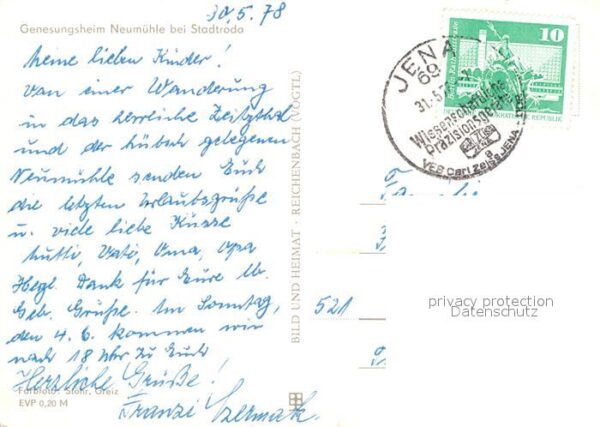 30.5.78
Genesungsheim Neumühle bei Stadtroda
Meine lieben Kinder!
Von einer Wanderung
in das herrliche Zeitztal
und der hübsch gelegenen
Neumühle senden Euch
die letzten Urlaubsgrüße
u. viele liebe Küsse
Mutti, Vati, Oma, Opa
Herzl. Dank für Eure lb.
Geb. Grüße. Am Sonntag,
den 4.6. kommen wir
nach 18 Uhr zu Euch
Herzliche Grüße!
Franzi Czermak
Farbfoto: Stohr, Greiz
EVP 0,20 M
BILD UND HEIMAT · REICHENBACH (VOGTL)
JENA
69
Wissenschaftliche
Präzisionsgeräte
VEB Carl Zeiss JENA
10
Familie
521
privacy protection
Datenschutz